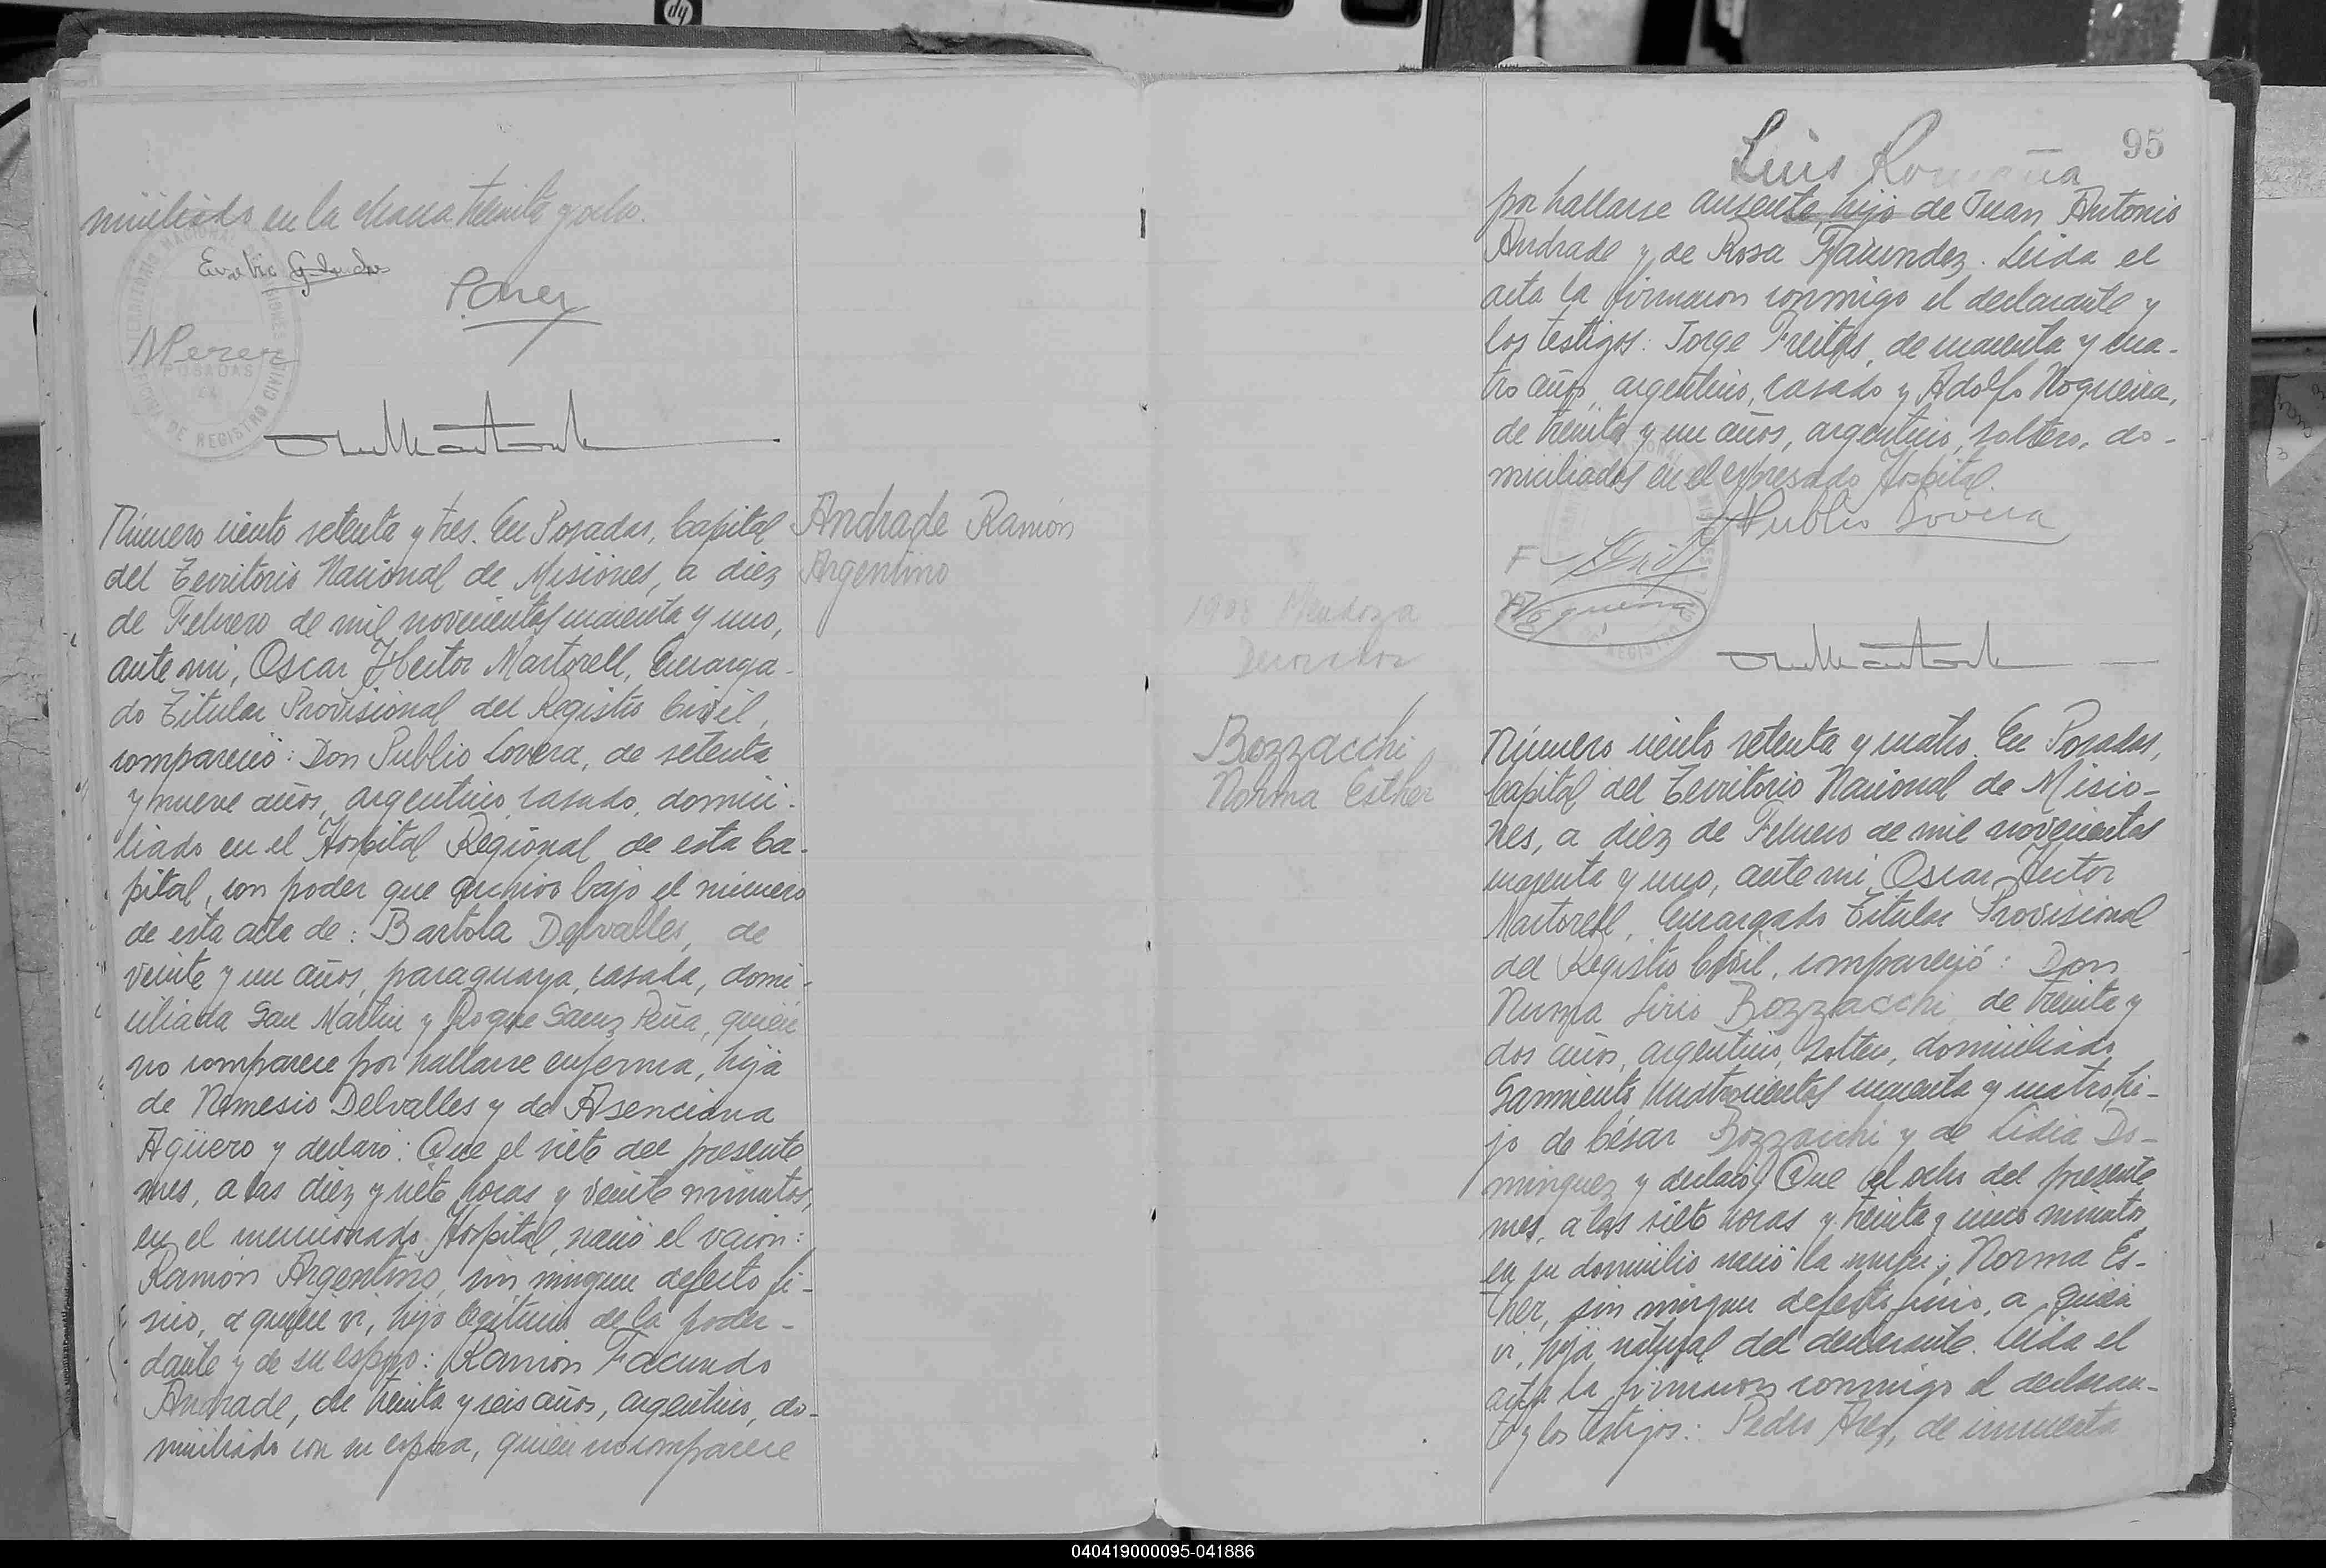 miciliado en la chacra treinta y ocho.
TERRITORIO NACIONAL DE MISIONES
OFICINA DE REGISTRO CIVIL
POSADAS
P. Arez
NPerez
Número ciento setenta y tres. En Posadas, Capital
del Territorio Nacional de Misiones, a diez
de Febrero de mil novecientos cuarenta y uno,
ante mi, Oscar Hector Martorell, Encarga-
do Titular Provisional del Registro Civil,
compareció: Don Publio Lovera, de setenta
y nueve años, argentino, casado, domici-
liado en el Hospital Regional de esta Ca-
pital, con poder que archivo bajo el número
de esta acta de: Bartola Delvalles, de
veinte y un años, paraguaya, casada, domi-
ciliada San Martin y Roque Saenz Peña, quien
no comparece por hallarse enferma, hija
de Nemesio Delvalles y de Asenciana
Agüero y declaró: Que el siete del presente
mes, a las diez y siete horas y veinte minutos,
en el mencionado Hospital, nació el varón:
Ramón Argentino, sin ningun defecto fi-
sico, a quien vi, hijo legitimo de la poder-
dante y de su esposo: Ramón Facundo
Andrade, de treinta y seis años, argentino, do-
miciliado con su esposa, quien no comparece
Andrade Ramón
Argentino
95
Luis Romaña
por hallarse ausente, hijo de Juan Antonio
Andrade y de Rosa Facundez. Leida el
acta la firmaron conmigo el declarante y
los testigos: Jorge Freitas, de cuarenta y cua-
tro años, argentino, casado y Adolfo Nogueira,
de treinta y un años, argentino, soltero, do-
miciliados en el expresado Hospital.
Publio Lovera
Nogueira
1908 Mendoza
Bozzacchi
Norma Esther
Número ciento setenta y cuatro. En Posadas,
Capital del Territorio Nacional de Misio-
nes, a diez de Febrero de mil novecientos
cuarenta y uno, ante mi, Oscar Hector
Martorell, Encargado Titular Provisional
del Registro Civil, compareció: Don
Numa Sirio Bozzacchi, de treinta y
dos años, argentino, soltero, domiciliado
Sarmiento cuatrocientos cuarenta y cuatro hi-
jo de César Bozzacchi y de Lidia Do-
minguez y declaró: Que el ocho del presente
mes, a las siete horas y treinta y cinco minutos,
en su domicilio nació la mujer: Norma Es-
ther, sin ningun defecto fisico, a quien
vi, hija natural del declarante. Leida el
acta la firmaron conmigo el declaran-
te y los testigos: Pedro Arez, de cincuenta
040419000095-041886